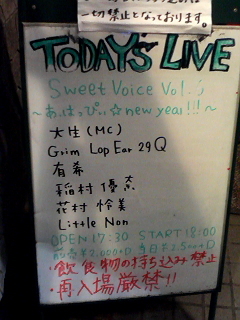 一切禁止となっております。
TODAY'S LIVE
Sweet Voice Vol.
～あ、はっぴぃ☆new year!!!～
大生(MC)
Grim Lop Ear 29Q
有希
稲村優奈
花村怜美
Little Non
OPEN 17:30 START 18:00
前売¥2,000+D 当日¥2,500+D
・飲食物の持ち込み禁止
・再入場厳禁!!